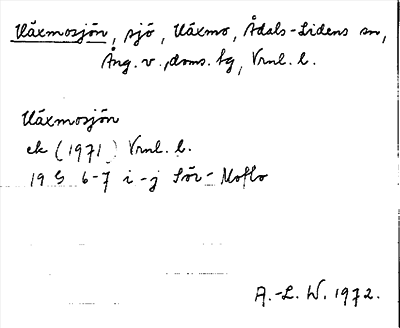 Växmosjön, sjö, Växmo, Ådals-Lidens sn,
Ång. v. doms. tg, Vrnl. l.
Växmosjön
ek (1971) Vrnl. l.
19 G 6-7 i-j Sör-Moflo
A.-L. W. 1972.